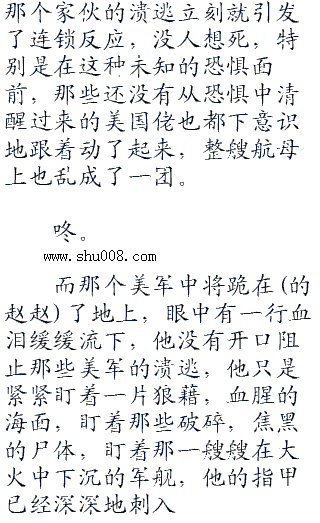 那个家伙的溃逃立刻就引发
了连锁反应，没人想死，特
别是在这种未知的恐惧面
前，那些还没有从恐惧中清
醒过来的美国佬也都下意识
地跟着动了起来，整艘航母
上也乱成了一团。
咚。
www.shu008.com
而那个美军中将跪在(的
赵赵)了地上，眼中有一行血
泪缓缓流下，他没有开口阻
止那些美军的溃逃，他只是
紧紧盯着一片狼藉，血腥的
海面，盯着那些破碎，焦黑
的尸体，盯着那一艘艘在大
火中下沉的军舰，他的指甲
已经深深地刺入